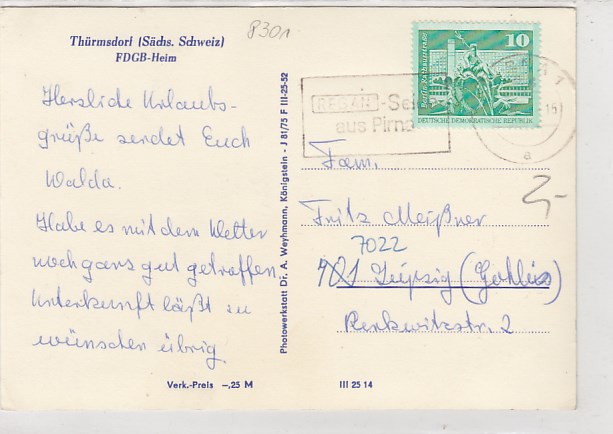 8301
Thürmsdorf (Sächs. Schweiz)
FDGB-Heim
Herzliche Urlaubs-
grüße sendet Euch
Walda.
Habe es mit dem Wetter
noch ganz gut getroffen,
Unterkunft läßt zu
wünschen übrig
Verk.-Preis -,25 M
Photowerkstatt Dr. A. Weyhmann, Königstein - J 81/75 F III-25-52
REGAN-Sei
aus Pirna
10
Berlin Rathausstrasse
DEUTSCHE DEMOKRATISCHE REPUBLIK
a
2,-
Fam.
Fritz Meißner
7022
701 Leipzig (Gohlis)
Renkwitzstr. 2
III 25 14